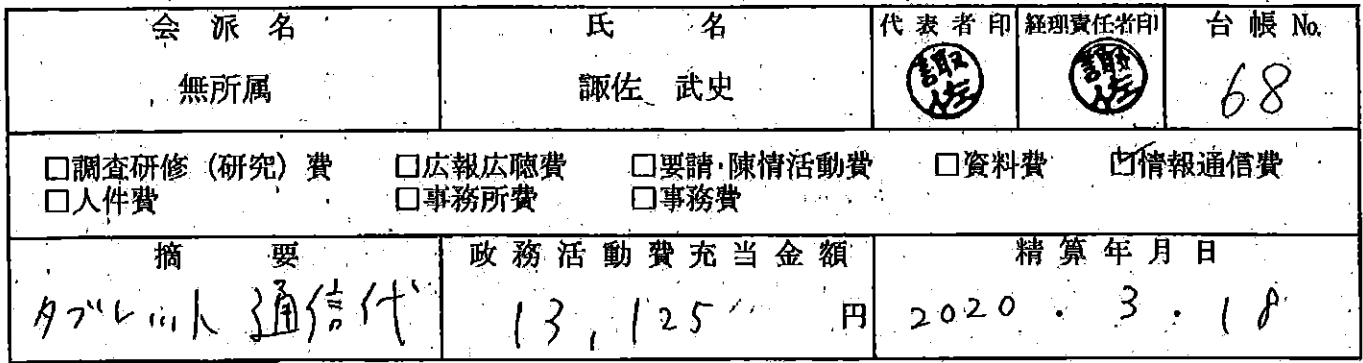 会派名 氏名 代表者印 経理責任者印 台帳No.
無所属 諏佐 武史 諏佐 諏佐 68
□調査研修(研究)費 □広報広聴費 □要請・陳情活動費 □資料費 ☑情報通信費
□人件費 □事務所費 □事務費
摘要 政務活動費充当金額 精算年月日
タブレット通信代 13,125円 2020.3.18